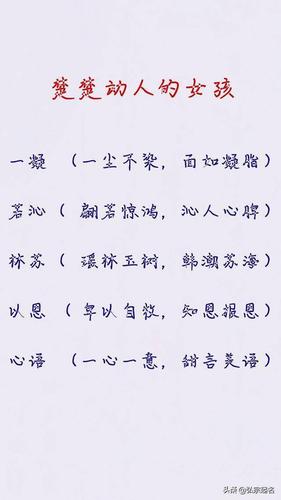 楚楚动人的女孩
一凝 （一尘不染，面如凝脂）
若沁（ 翩若惊鸿，沁人心脾）
林苏（ 瑶林玉树，韩潮苏海）
以恩（ 卑以自牧，知恩报恩）
心语 （一心一意，甜言美语）
头条@弘宗起名